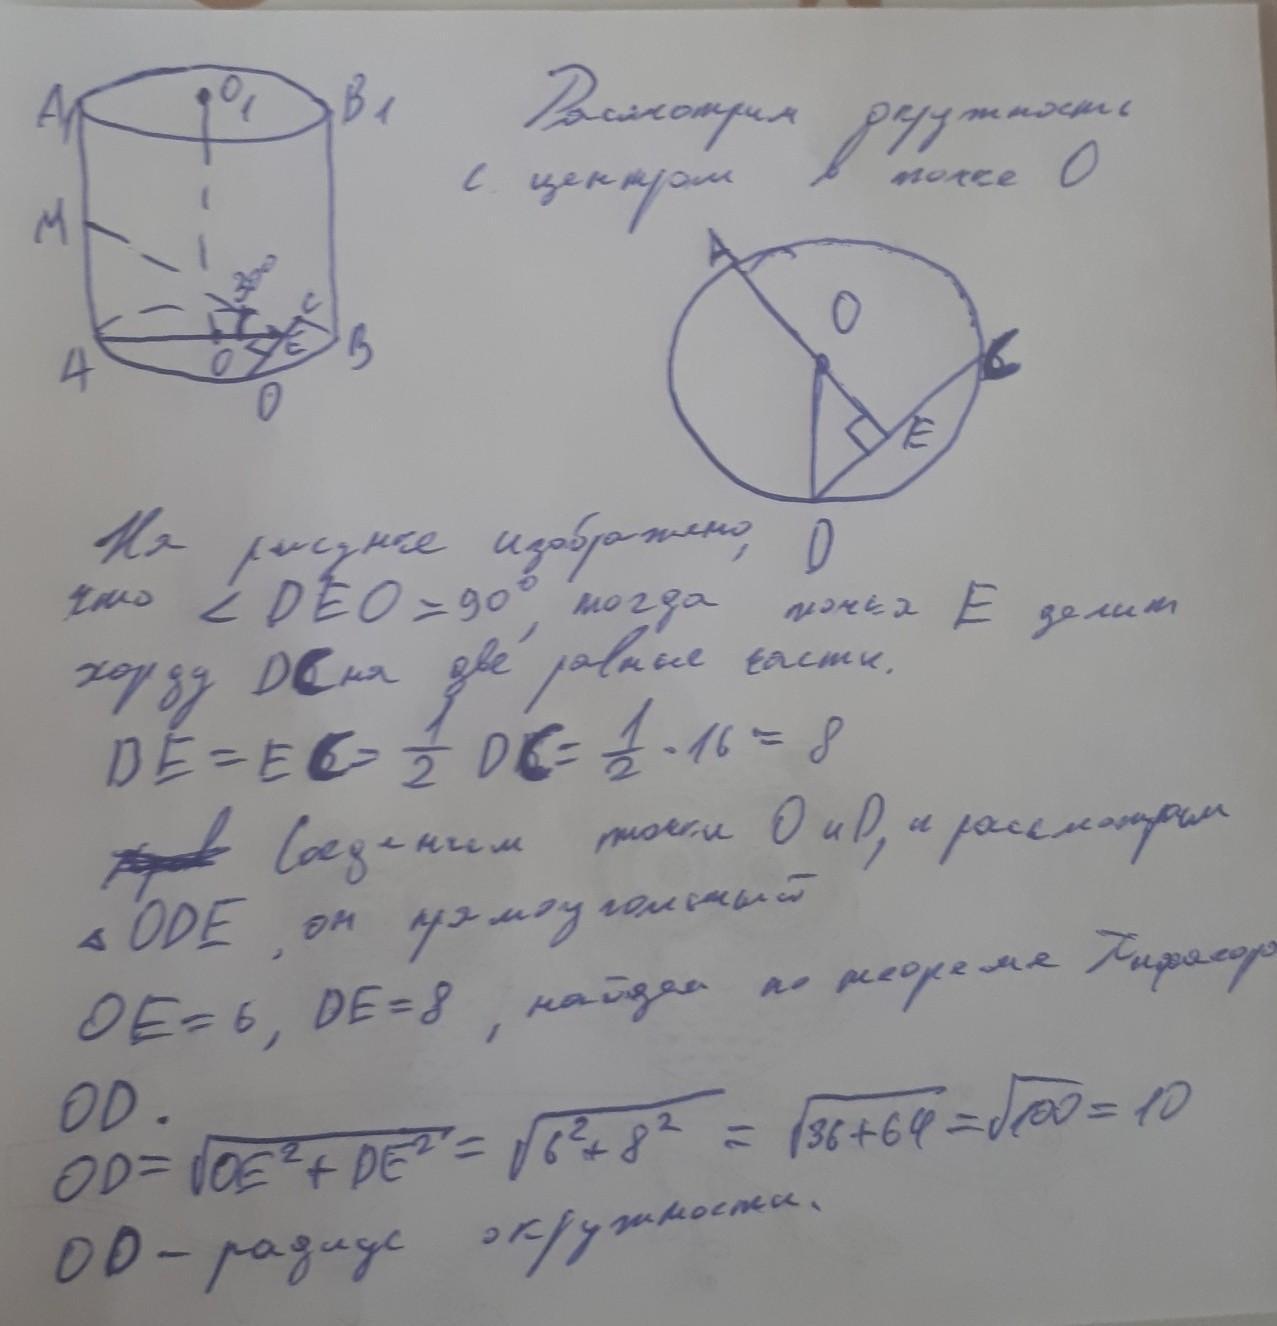 A1 O1 B1
M
30°
A O E C B
D
Рассмотрим окружность
с центром в точке O
A
O
C
E
D
На рисунке изображено,
что < DEO = 90°, тогда точка E делит
хорду DC на две равные части.
DE = EC = 1/2 DC = 1/2 · 16 = 8
Соединим точки O и D, и рассмотрим
△ ODE, он прямоугольный
OE = 6, DE = 8, найдем по теореме Пифагора
OD.
OD = √OE² + DE² = √6² + 8² = √36+64 = √100 = 10
OD – радиус окружности.